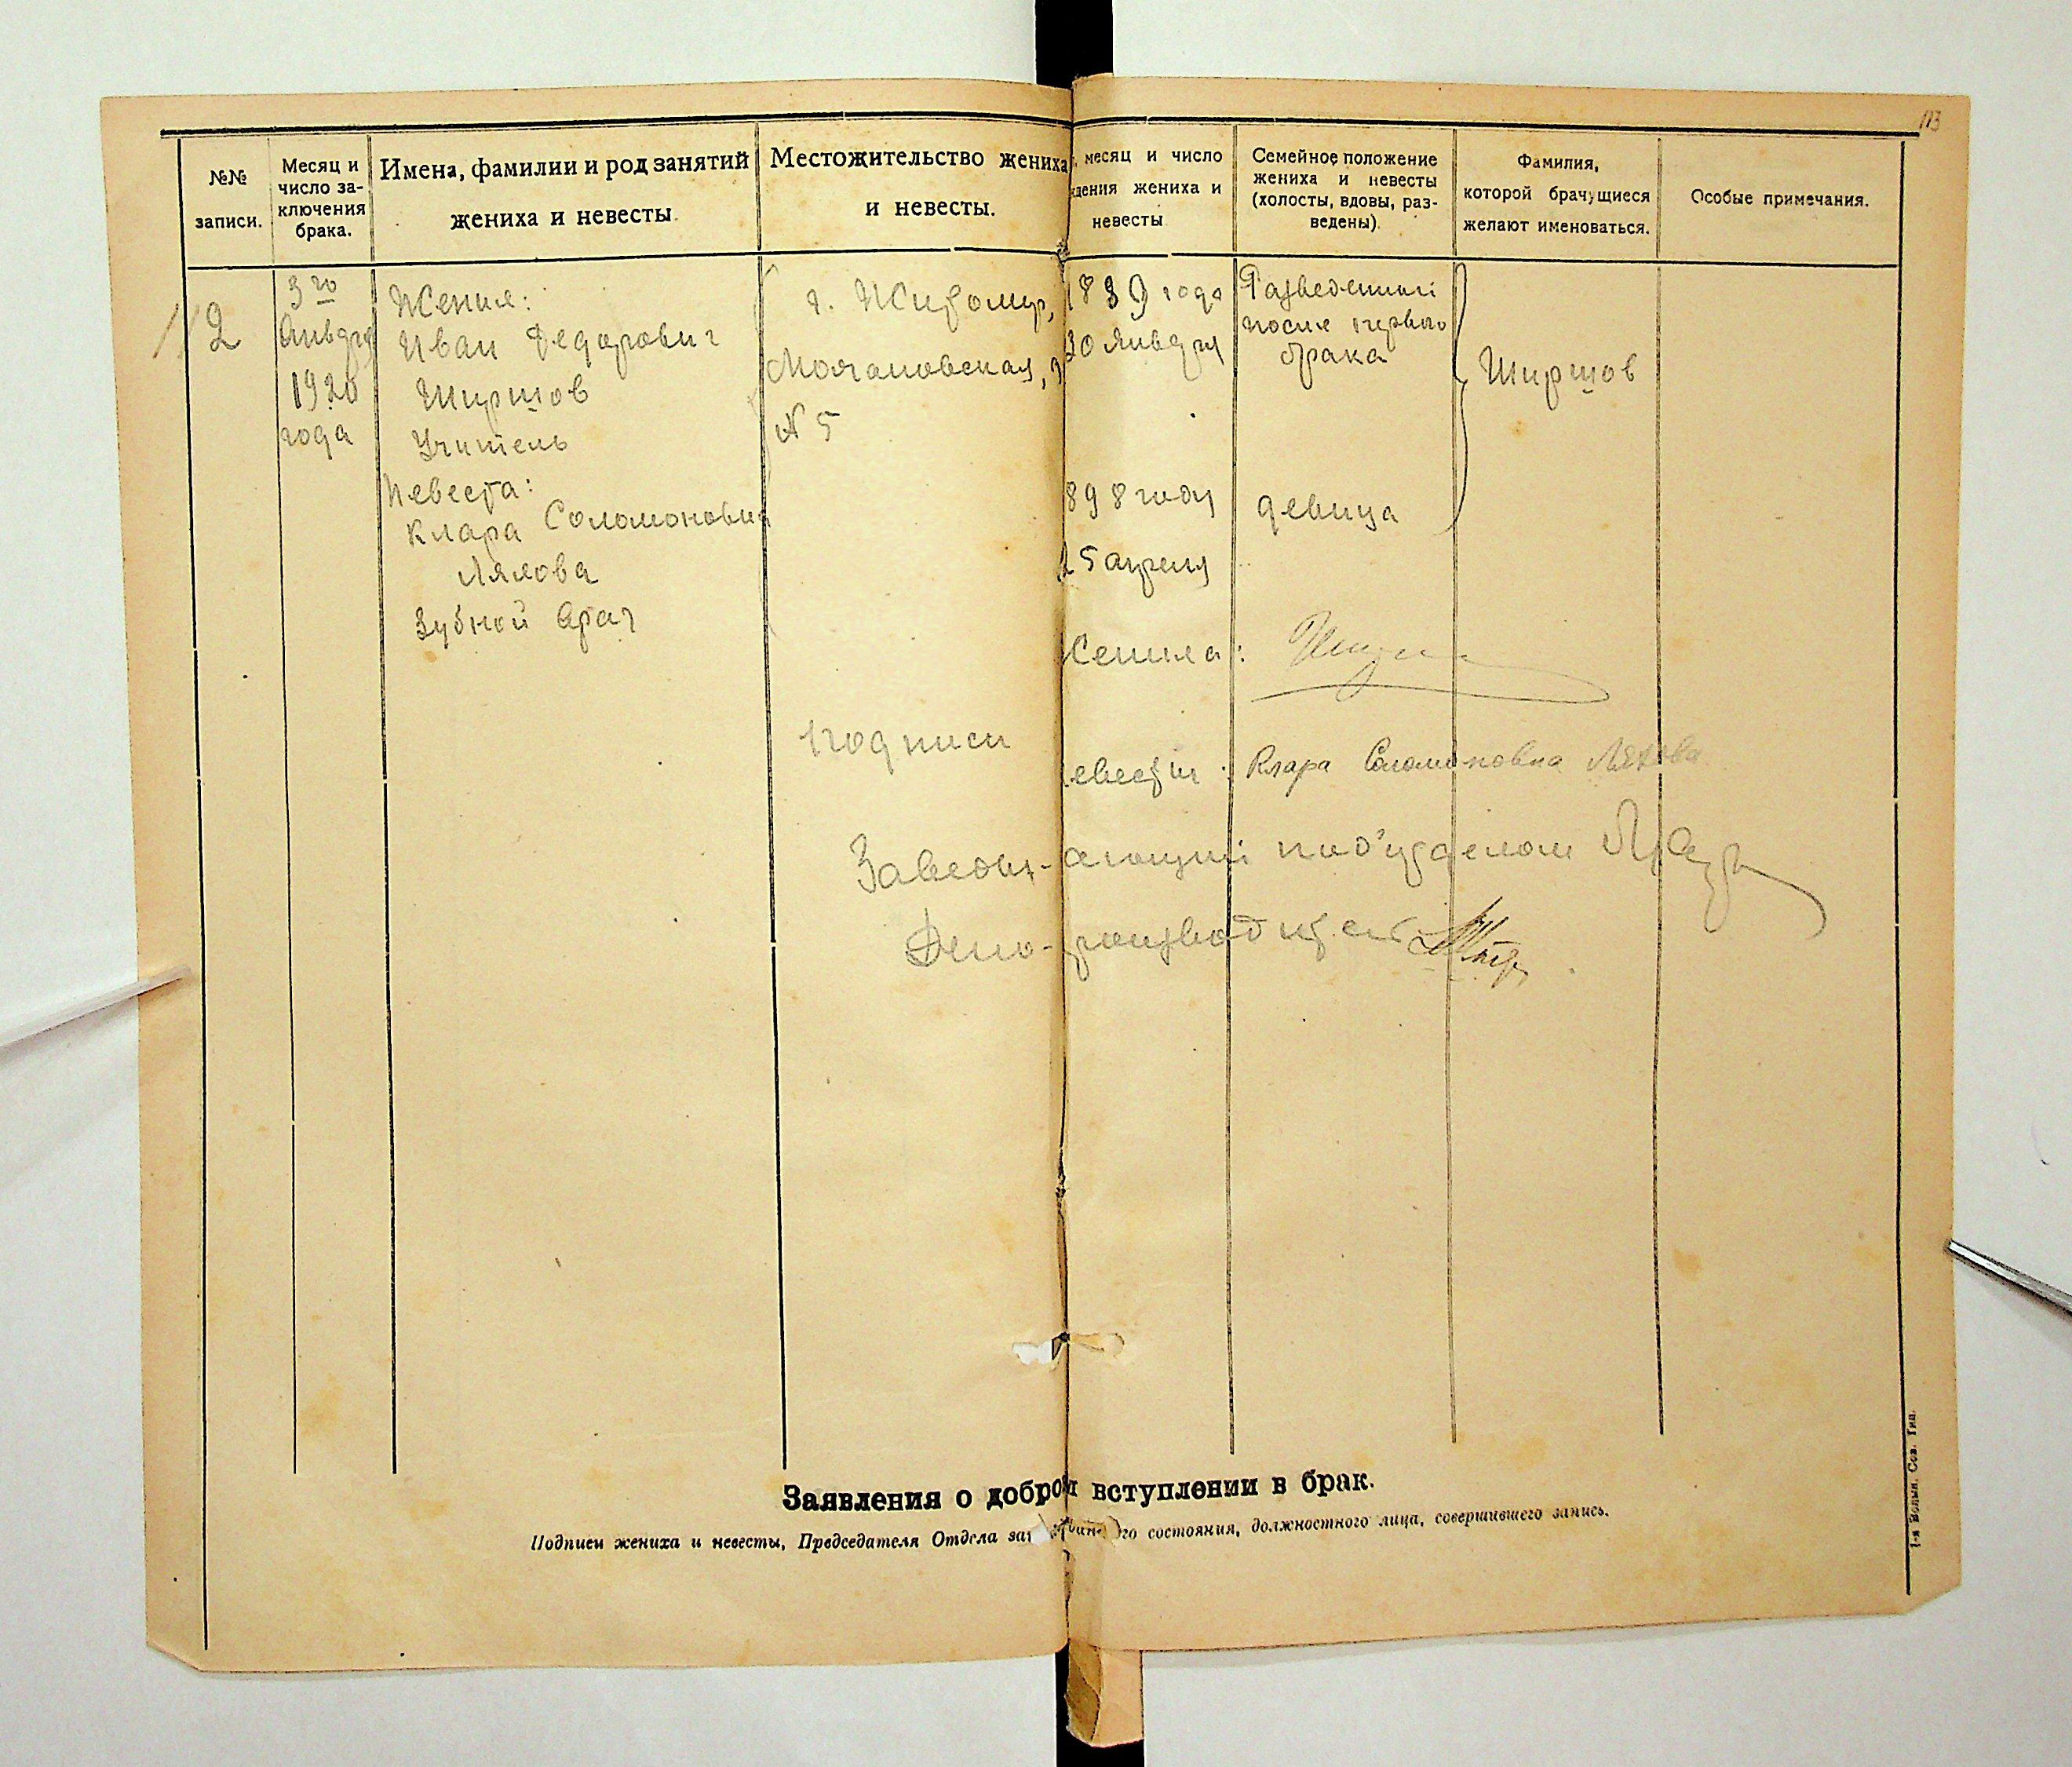 113
№№ записи.
Месяц и число за-ключения брака.
Имена, фамилии и род занятий
жениха и невесты.
Местожительство жениха
и невесты.
месяц и число
ждения жениха и
невесты
Семейное положение
жениха и невесты
(холосты, вдовы, раз-
ведены).
Фамилия,
которой брачущиеся
желают именоваться.
Особые примечания.
2
3го
Января
1920
года
Жених:
Иван Федорович
Ширшов
Учитель
Невеста:
Клара Соломоновна
Зубной врач
г. Житомир,
№ 5
1889 года
30 Января
Разведенный
после первого
брака
Ширшов
898 году
25 апреля
девица
Жениха:
Подписи
евесты: Клара Соломоновна
Заведы-вающий под'отделом
Дело-производитель
Заявления о добро вступлении в брак.
Подписи жениха и невесты, Председателя Отдела за го состояния, должностного лица, совершившего запись.
1-я Волын. Сов. Тип.